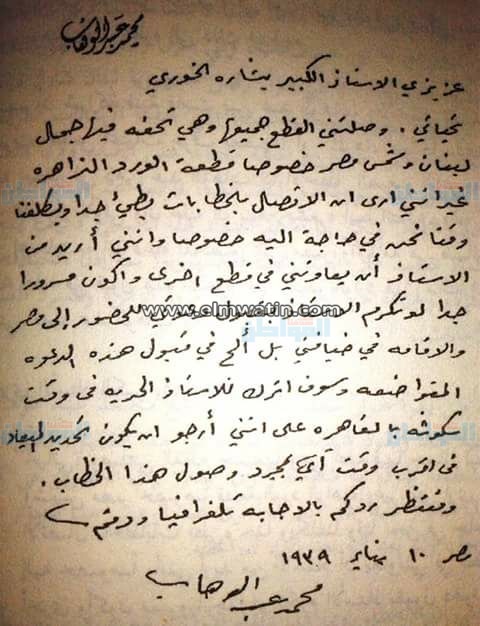 محمد عبد الوهاب
عزيزي الاستاذ الكبير بشاره الخوري
تحياتي . وصلتني القطع جميعها وهي تحفه فيها جمال
لبنان وشمس مصر خصوصا قطعة الورد الزاهره
غير انني ارى ان الاتصال بالخطابات بطيئ جدا ويكلفنا
وقتا نحن في حاجة اليه خصوصا وانني أريد من
الاستاذ أن يعاونني في قطع اخرى واكون مسرورا
جدا لو تكرم الاستاذ للحضور إلى مصر
www.elmwatin.com
والاقامه في ضيافتي بل ألح في قبول هذه الدعوه
المتواضعه وسوف اترك للاستاذ الحريه في وقت
مكوثه بالقاهره على انني أرجو ان يكون تحديد الميعاد
في اقرب وقت أي بمجرد وصول هذا الخطاب .
وننتظر ردكم بالاجابه تلغرافيا ودمتم
مصر ١٠ يناير ١٩٣٩
محمد عبد الوهاب